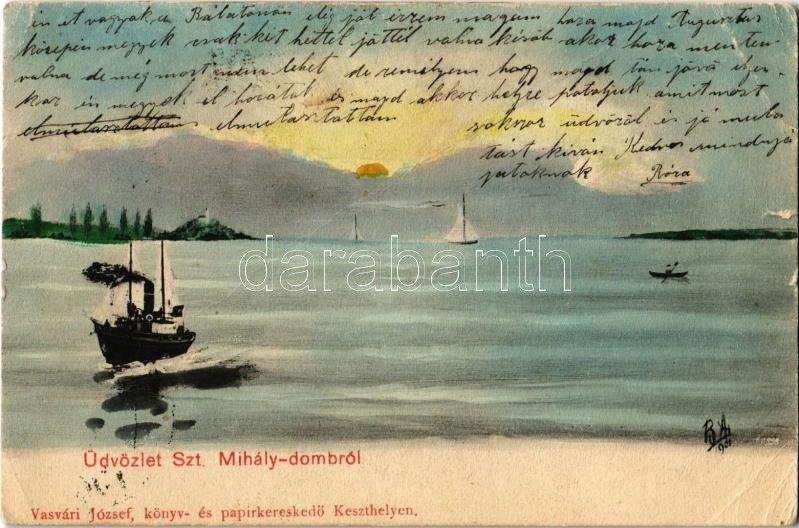 én itt vagyok a Balatonon elég jól érzem magam haza majd Augusztus
közepén megyek csak két héttel jöttél volna később akkor haza mentem
volna de még most nem lehet de remélyem hogy majd tán jövő
kor én megyek el hozzátok és majd akkor helyre potoljuk amit most
elmulasztottam elmulasztottam sokszor üdvözöl és jó mula
tást kiván Kedves mindnyá
jatoknak Róza
darabanth
901
Üdvözlet Szt. Mihály-dombról
Vasvári József, könyv- és papirkereskedő Keszthelyen.